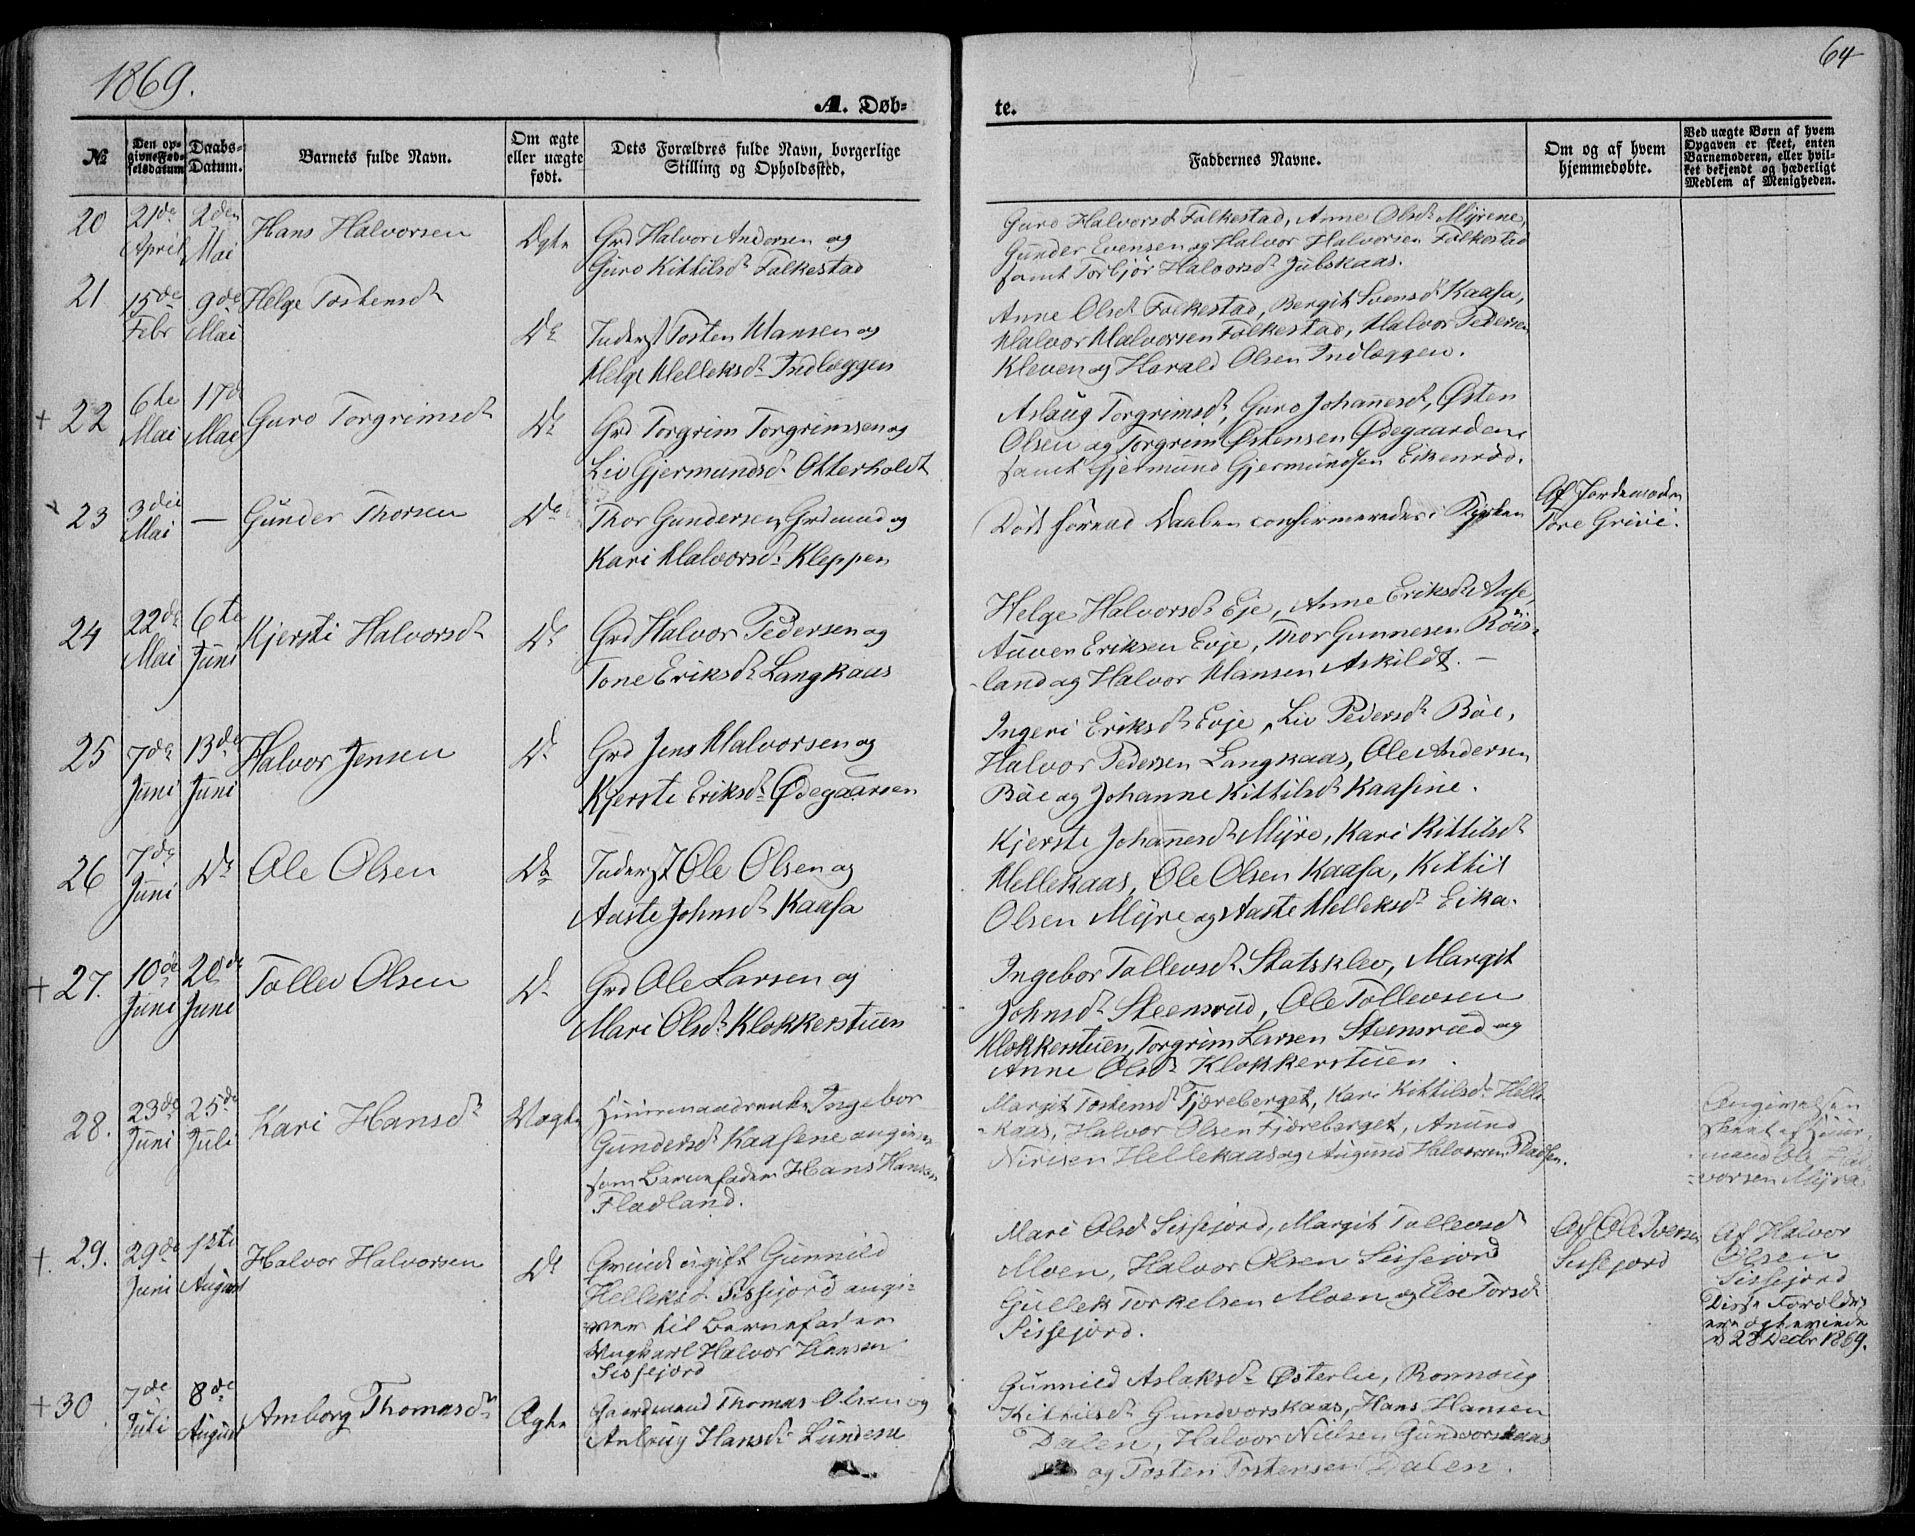 1869.
64
A. Døb-
te.
№
Den op-
givne Fød-
selsdatum
Daabs-
Datum.
Barnets fulde Navn.
Om ægte
eller uægte
født.
Dets Forældres fulde Navn, borgerlige
Stilling og Opholdssted.
Faddernes Navne.
Om og af hvem
hjemmedøbte.
Ved uægte Børn af hvem
Opgaven er skeet, enten
Barnemoderen, eller hvil-
ket bekjendt og hæderligt
Medlem af Menigheden.
20
21de
April
2den
Mai
Hans Halvorsen
Ægte
Grd Halvor Andersen og
Guro Kittilsdr Falkestad
Guro Halvorsd Falkestad, Anne Olsdr Myrene,
Gunder Evensen og Halvor Halvorsen Falkestad
samt Torbjør Halvorsdr Jubskaas.
21
15de
Febr
9de
Mai
Helge Tostensdr
Do
Inderst Tosten Hansen og
Helge Helleksdr Indlæggen
Anne Olsdr Falkestad, Bergit Svensdr Kaasa,
Halvor Halvorsen Falkestad, Halvor Pedersen
Kleven og Harald Olsen Indlæggen.
+ 22
6te
Mai
17de
Mai
Guro Torgrimsdr
Do
Grd Torgrim Torgrimsen og
Liv Gjermundsdr Otterholdt
Aslaug Torgrimsdr, Guro Johannesdr, Østen
Olsen og Torgrim Østensen Ødegaarden
samt Gjermund Gjermundsen Eikenrød.
23
3die
Mai
—
Gunder Thorsen
Do
Thor Gundersen Grdmand og
Kari Halvorsdr Kleppen
Døde forend Daaben confirmeredes i Kyrken
Af Jordemoder
Tore Grivi.
24
22de
Mai
6te
Juni
Kjersti Halvorsdr
Do
Grd Halvor Pedersen og
Tone Eriksdr Langkaas
Helge Halvorsdr Eje, Anne Eriksdr Aase,
Auver Eriksen Evje, Thor Gunnesen Röis-
land og Halvor Hansen Askildt. —
25
7de
Juni
13de
Juni
Halvor Jensen
Do
Grd Jens Halvorsen og
Kjerste Eriksdr Ødegaarden
Ingeri Eriksdr Evje, Liv Pedersdr Böe,
Halvor Pedersen Langkaas, Ole Andersen
Böe og Johanne Kittilsdr Kaasine.
26
7de
Juni
Do
Ole Olsen
Do
Inderst Ole Olsen og
Aaste Johnsdr Kaasa
Kjerste Johannesdr Myre, Kari Kittilsdr
Hellekaas, Ole Olsen Kaasa, Kittil
Olsen Myre og Aaste Helleksdr Eika.
+ 27.
10de
Juni
20de
Juni
Tollev Olsen
Do
Grd Ole Larsen og
Mari Olsdr Klokkerstuen
Ingebor Tollevsdr Statsklev, Margit
Johnsdr Steensrud, Ole Tollevsen
Klokkerstuen, Torgrim Larsen Steensrud og
Anne Olsdr Klokkerstuen.
28.
23de
Juni
25de
Juli
Kari Hansdr
Uægte
Huusmandsenke Ingebor
Gundersdr Kaasene angiver
som Barnefader Hans Hansen
Fladland.
Margit Tostensdr Fjæreberget, Kari Kittilsdr Helle-
kaas, Halvor Olsen Fjæreberget, Anund
Nirisen Hellekaas og Augund Halvorsen Pladsen.
Angivelsen
skeet af Huus-
mand Ole Hal-
vorsen Myra
+. 29.
29de
Juni
1ste
August
Halvor Halvorsen
Do
ugift Gunnild
Helleksd Sissejord angi-
ver til Barnefader
Ungkarl Halvor Hansen
Sissejord
Mari Olsd Sissejord, Margit Tollevsdr
Moen, Halvor Olsen Sissejord
Gullek Torkelsen Moen og Else Torsdr
Sissejord.
Af Ole Iversen
Sissejord
Af Halvor
Olsen
Sissejord
Disse Forældre
ere ægteviede
d 28 Decbr 1869.
+ 30.
7de
Juli
8de
August
Amborg Thomasdr
Ægte
Gaardmand Thomas Olsen og
Anlaug Hansdr Lundene
Gunnild Aslaksdr Østerlie, Ronnoug
Kittilsdr Gundvorskaas, Hans Hansen
Dalen, Halvor Nielsen Gundvorskaas
og Tosten Tostensen Dalen.